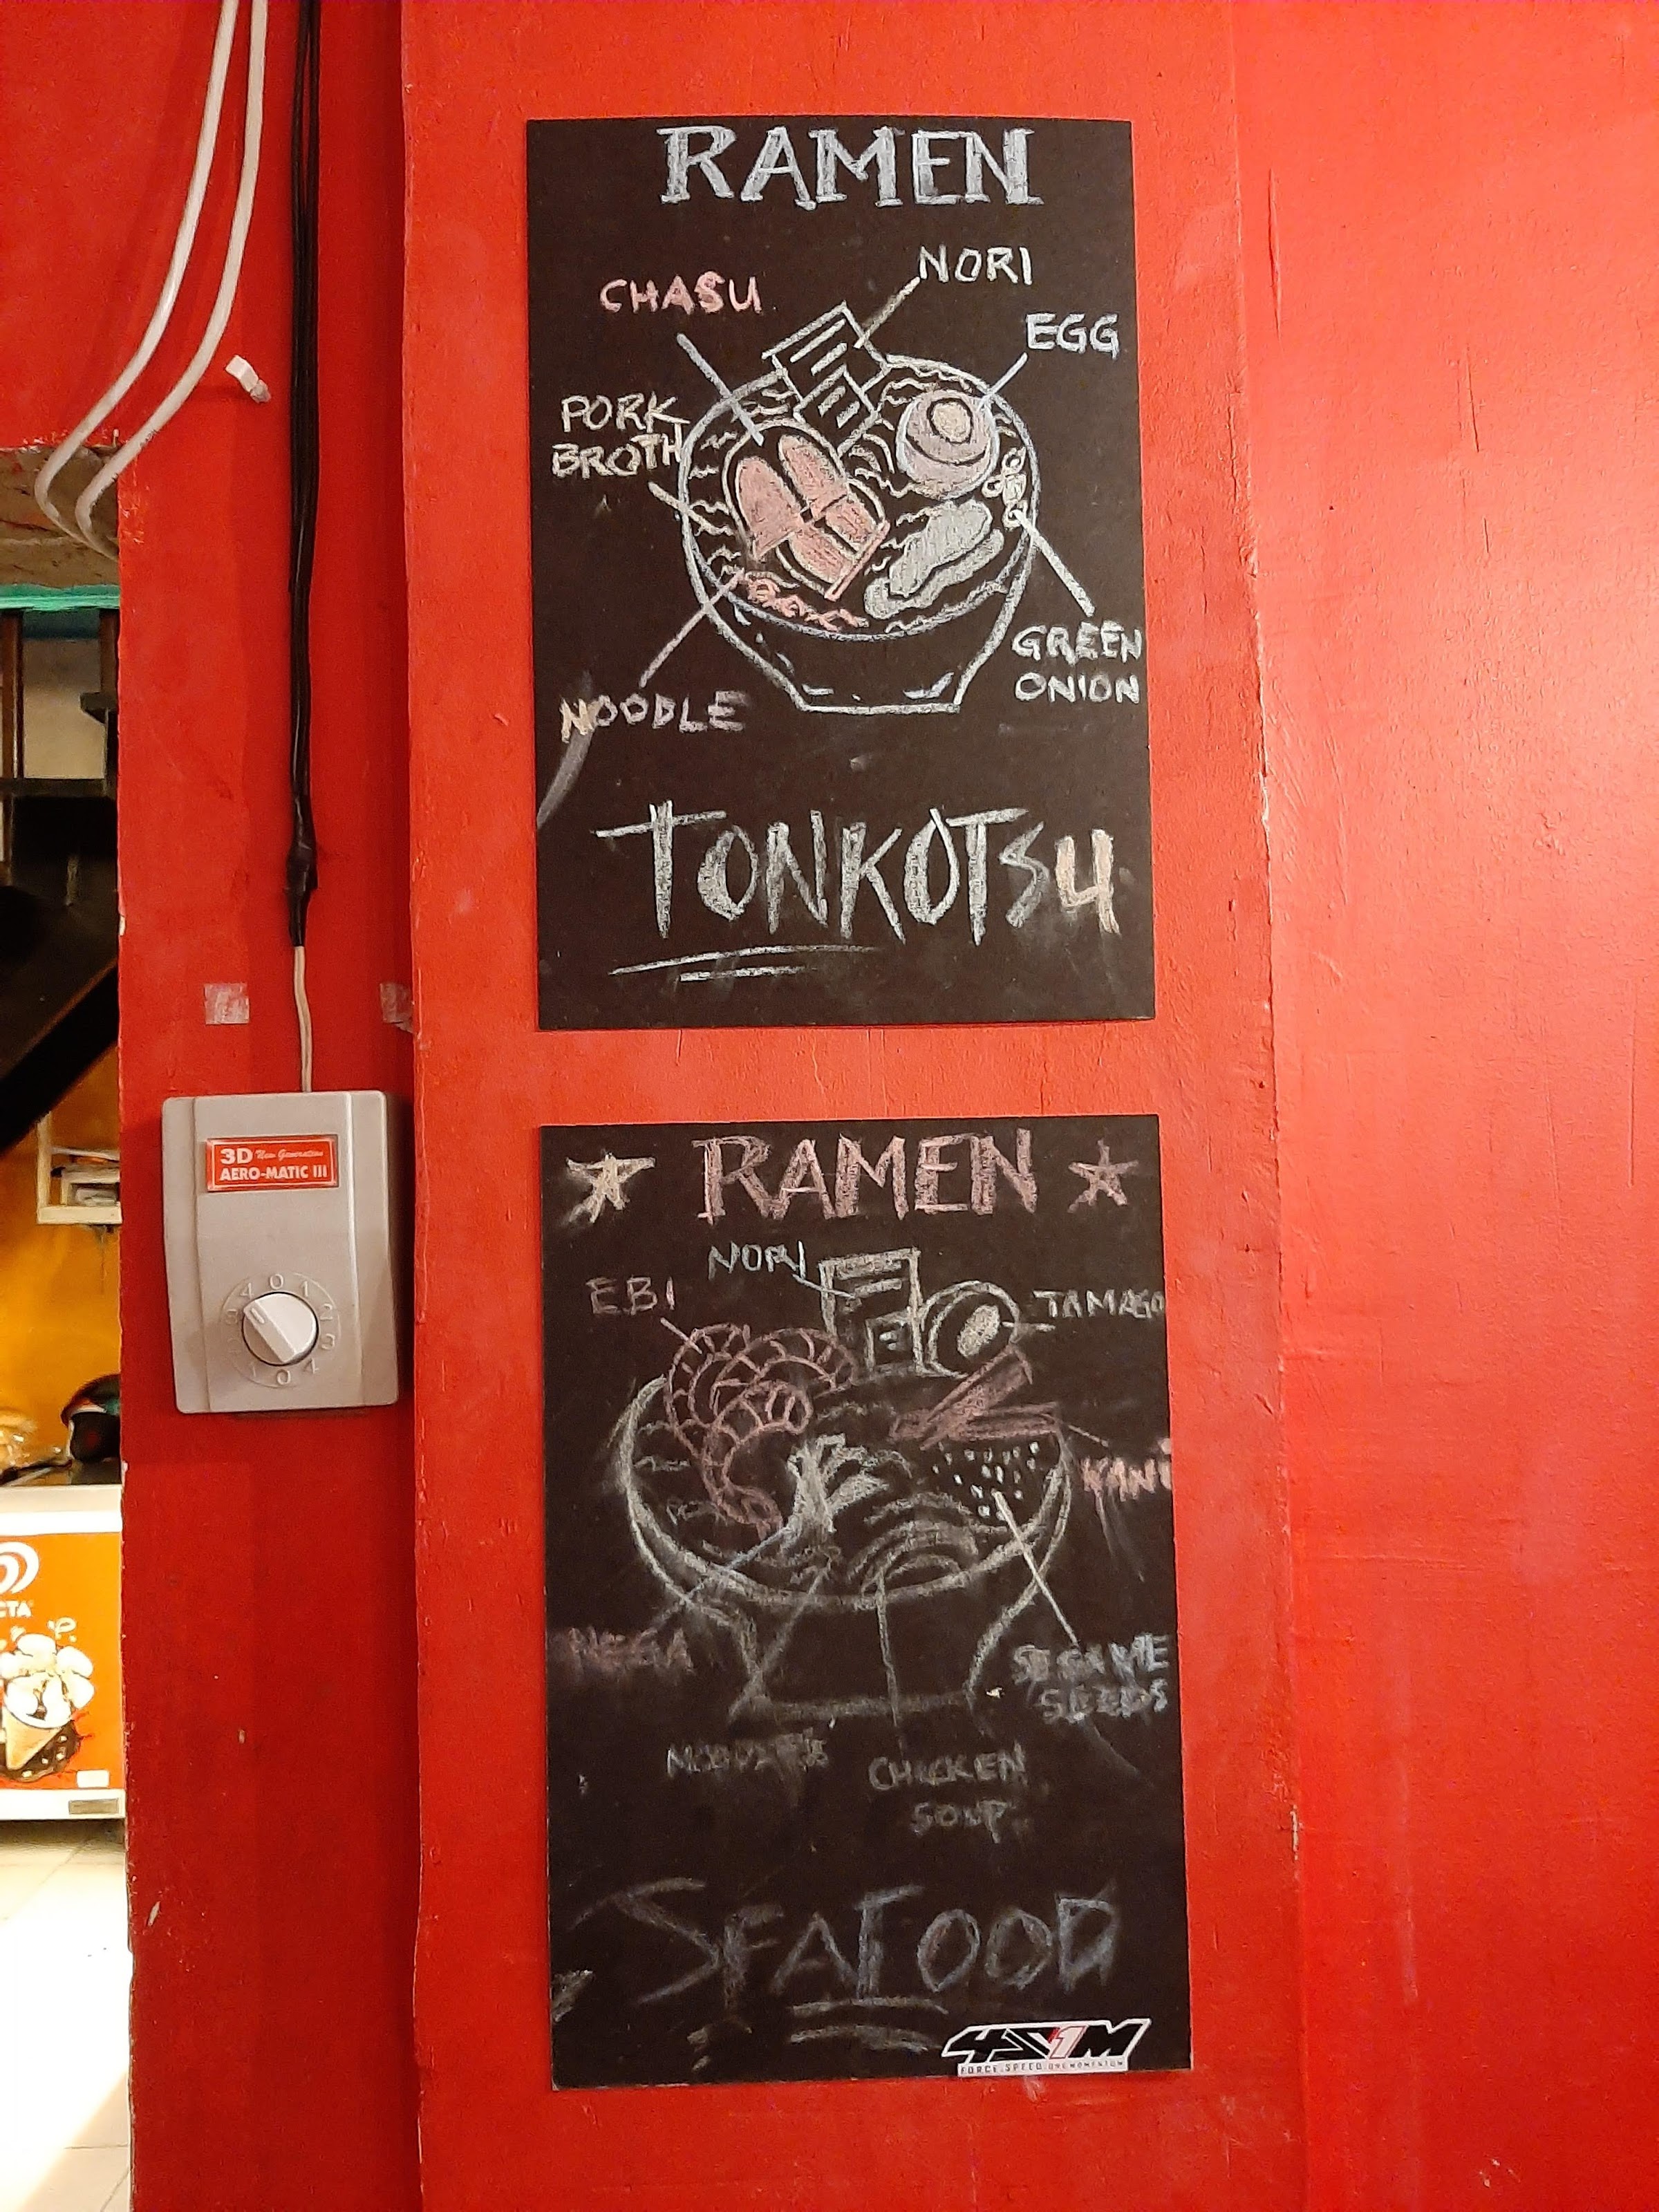 RAMEN
CHASU
NORI
EGG
PORK
BROTH
GREEN
ONION
NOODLE
TONKOTSU
3D New Generation
AERO-MATIC III
0 1 2 3 4 0
RAMEN
NORI
EBI
TAMAGO
KANI
NEGA
SESAME
SEEDS
CHICKEN
SOUP
SEAFOOD
4S1M
FORCE.SPEED.ONE MOMENTUM
CTA